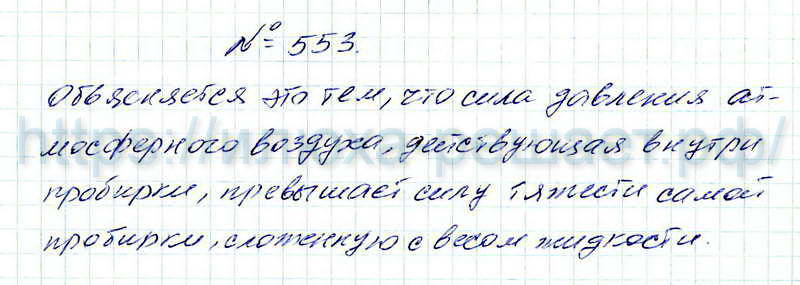 № 553.
Объясняется это тем, что сила давления ат-
мосферного воздуха, действующая внутри
пробирки, превышает силу тяжести самой
пробирки, сложенную с весом жидкости.